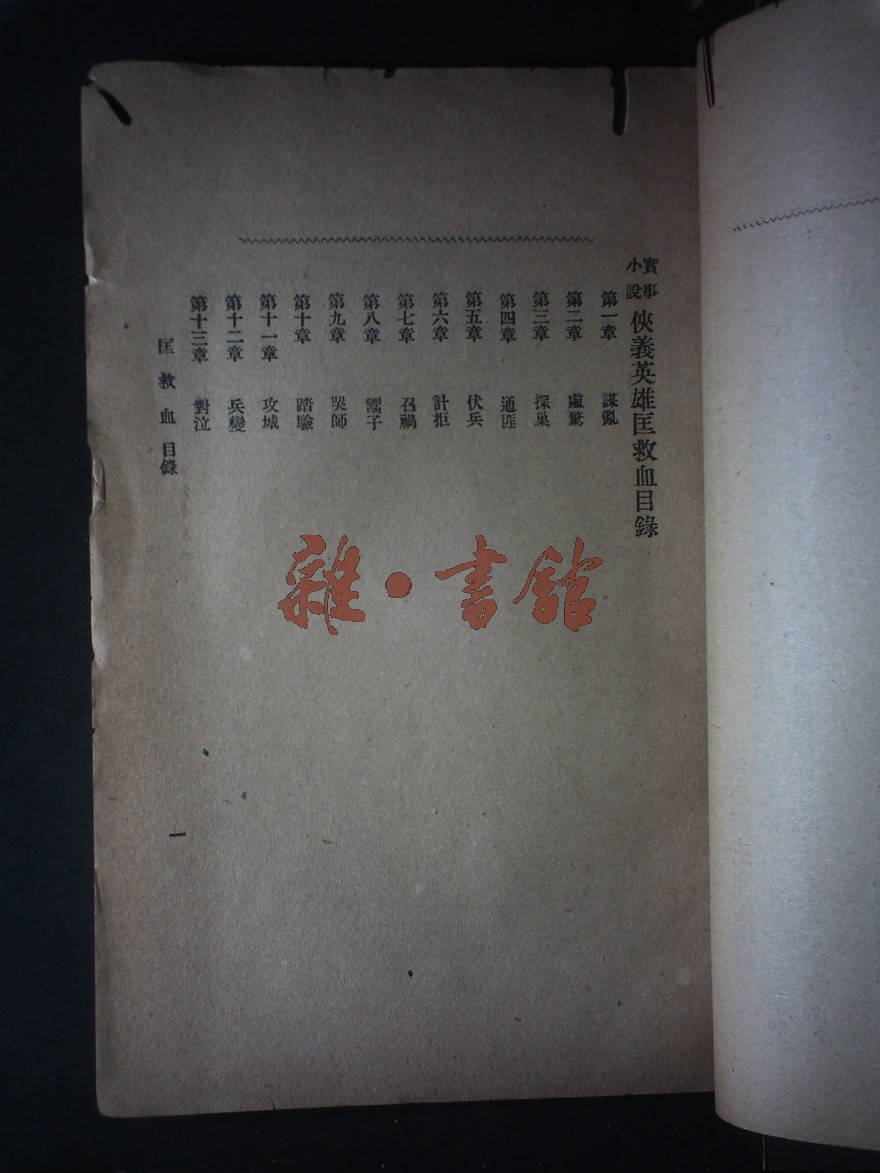 實事小說 俠義英雄匡救血目錄
第一章 謀儭
第二章 虛驚
第三章 探巢
第四章 通匪
第五章 伏兵
第六章 計拒
第七章 召禍
第八章 鬻子
第九章 哭師
第十章 踏驗
第十一章 攻城
第十二章 兵變
第十三章 對泣
匡救血 目錄
一
雜·書館